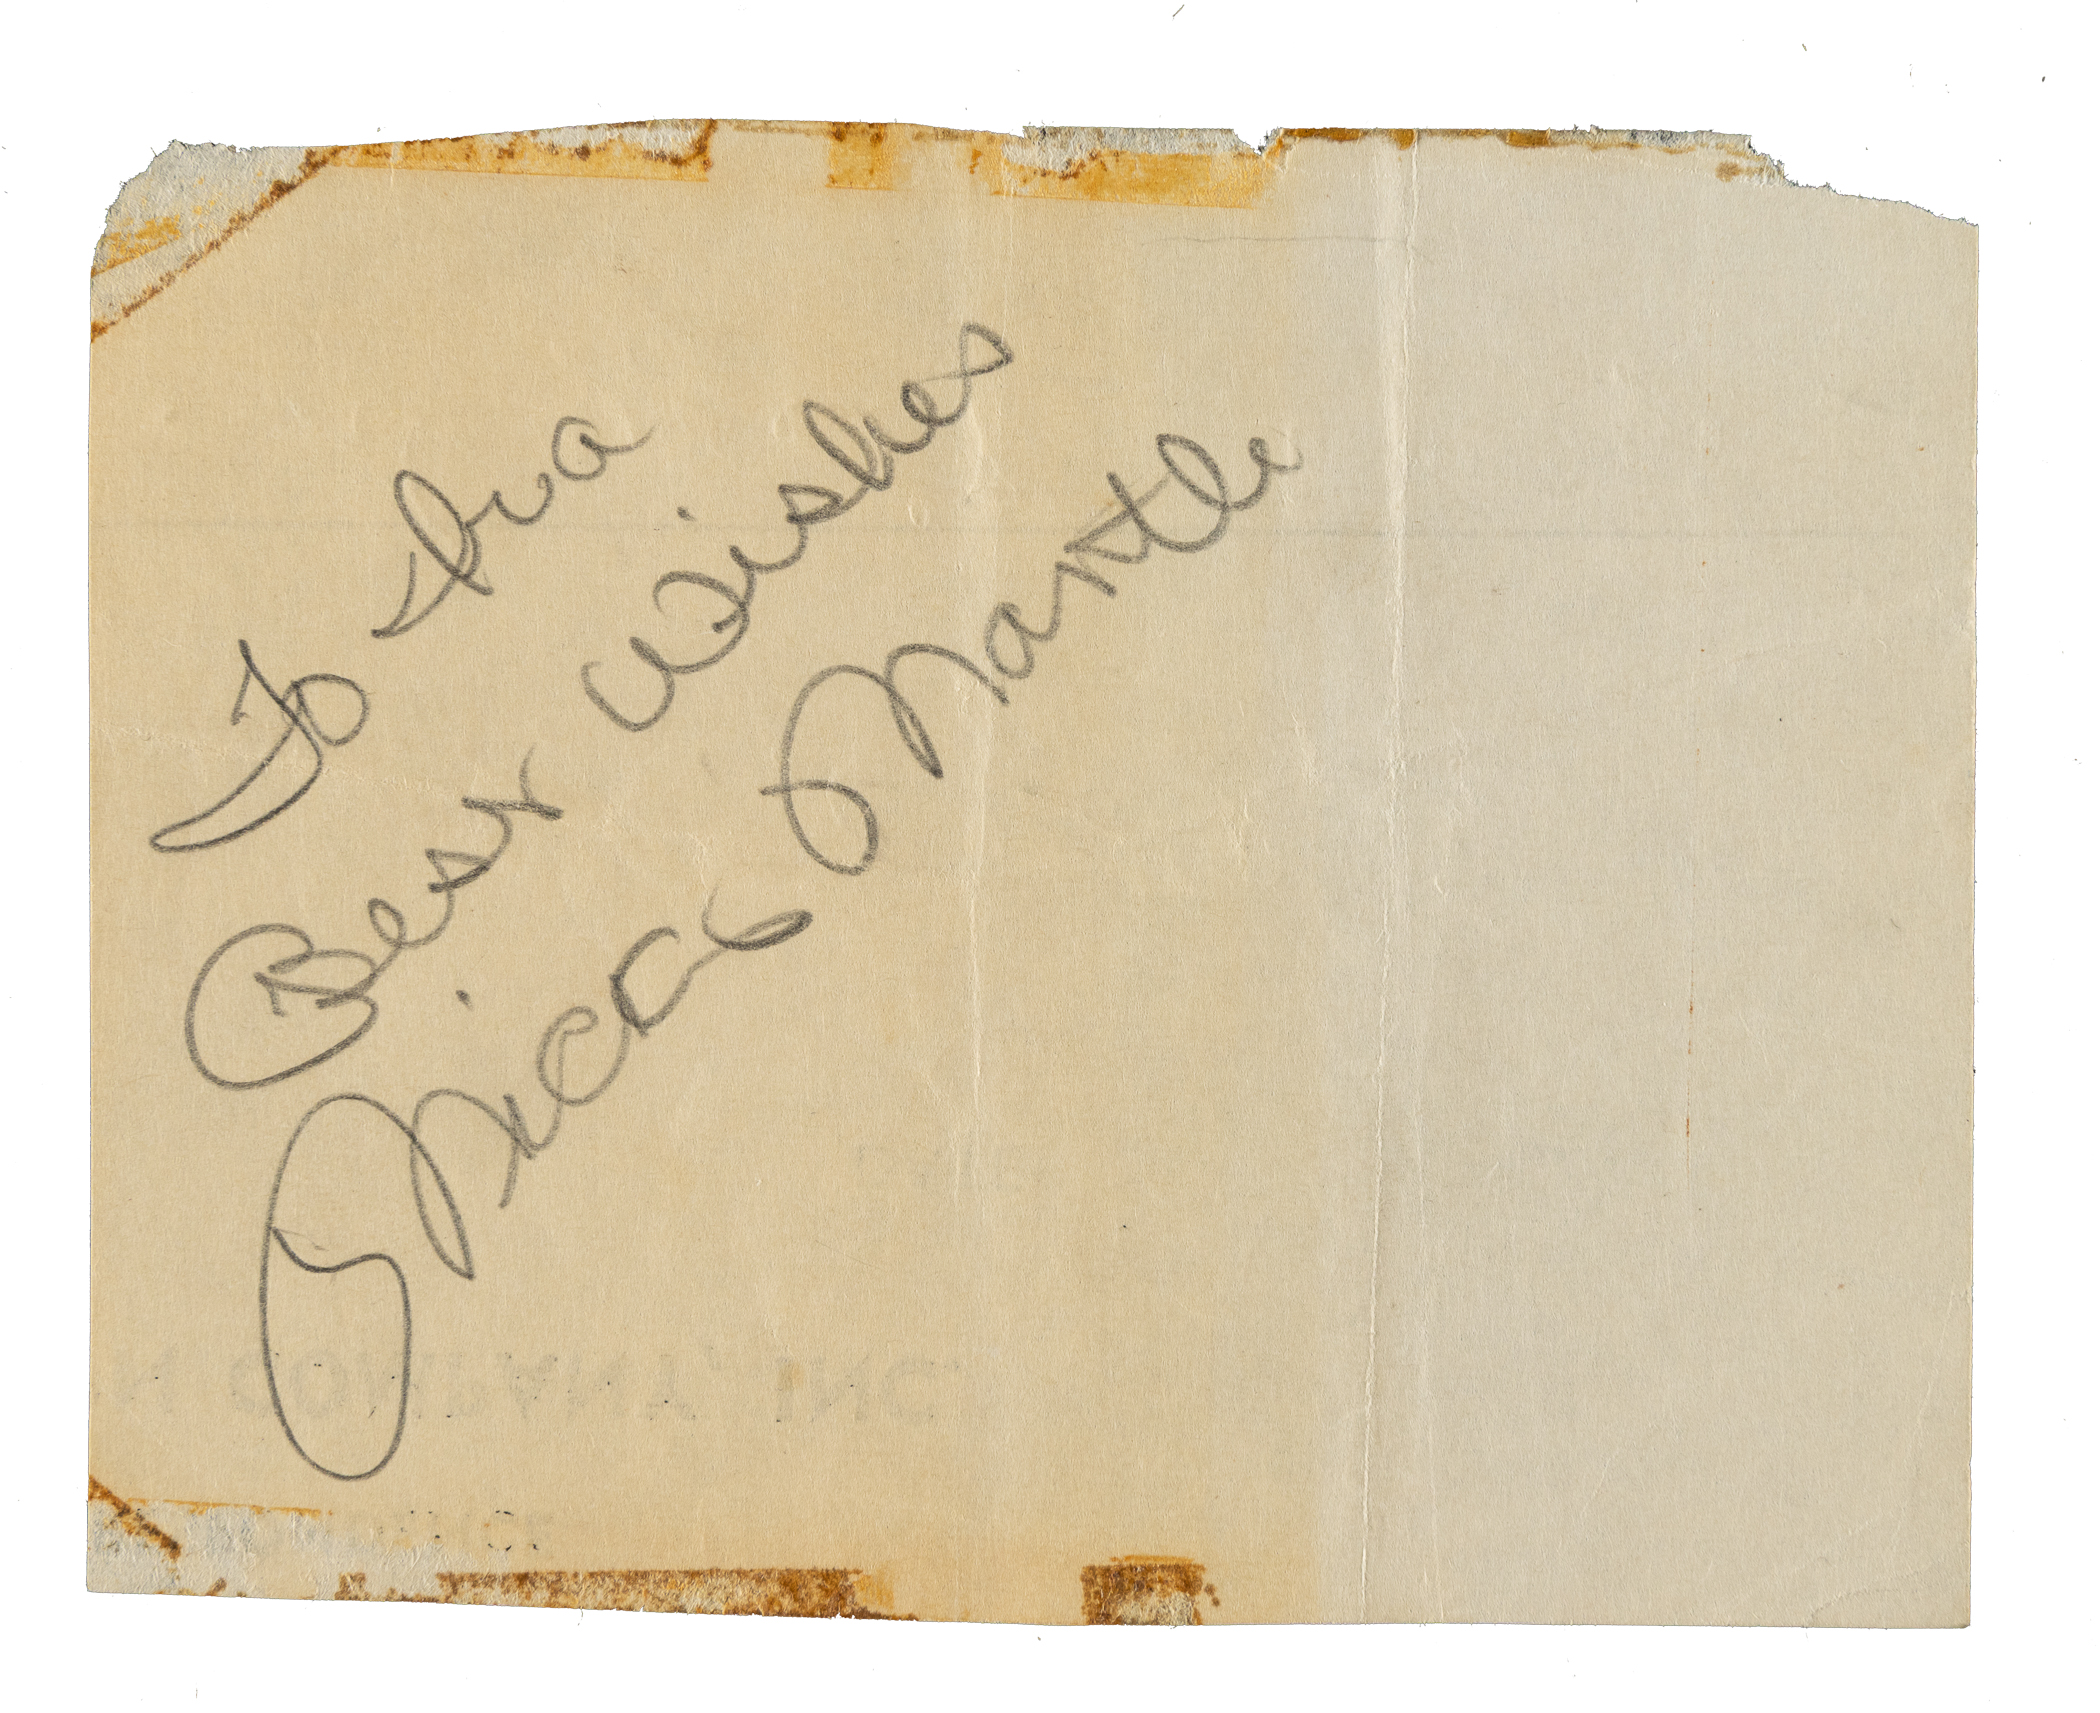 To Iva
Best Wishes
Mickey Mantle